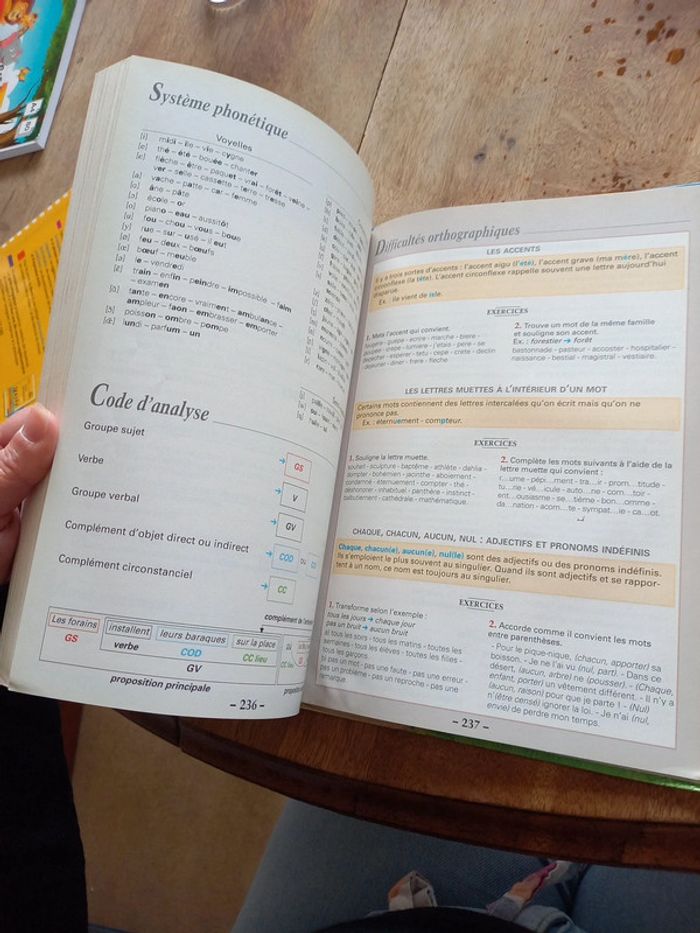 Système phonétique
Voyelles
[i] midi – île – vie – cygne
[e] thé – été – bouée – chanter
flèche – être – paquet – vrai – forêt – veine –
ver – selle – cassette – terre – tresse
[a] vache – patte – car – femme
âne – pâte
école – or
[o] piano – eau – aussitôt
[u] fou – chou – vous – boue
[y] rue – sur – usé – il eut
feu – deux – bœufs
bœuf – meuble
le – vendredi
train – enfin – peindre – impossible – faim
– examen
tante – encore – vraiment – ambulance –
ampleur – faon – embrasser – emporter
poisson – ombre – pompe
lundi – parfum – un
Code d'analyse
Groupe sujet
GS
Verbe
V
Groupe verbal
GV
Complément d'objet direct ou indirect
COD ou
Complément circonstanciel
CC
Les forains installent leurs baraques sur la place où
GS verbe COD CC lieu CC lieu
GV
proposition principale
– 236 –
Difficultés orthographiques
LES ACCENTS
Il y a trois sortes d'accents : l'accent aigu (l'été), l'accent grave (ma mère), l'accent
circonflexe (la tête). L'accent circonflexe rappelle souvent une lettre aujourd'hui
disparue.
Ex. : île vient de isle.
EXERCICES
1. Mets l'accent qui convient.
fougere - guepe - ecrire - marche - biere -
poupee - crepe - lumiere - j'etais - pere - se
depecher - esperer - tetu - cepe - crete - declin
dejeuner - diner - frere - fleche
2. Trouve un mot de la même famille
et souligne son accent.
Ex. : forestier → forêt
bastonnade - pasteur - accoster - hospitalier -
naissance - bestial - magistral - vestiaire.
LES LETTRES MUETTES À L'INTÉRIEUR D'UN MOT
Certains mots contiennent des lettres intercalées qu'on écrit mais qu'on ne
prononce pas.
Ex. : éternuement - compteur.
EXERCICES
1. Souligne la lettre muette.
souhait - sculpture - baptême - athlète - dahlia -
dompter - bohémien - jacinthe - aboiement -
condamné - éternuement - compter - thé -
déshonorer - inhabituel - panthère - instinct -
balbutiement - cathédrale - mathématique.
2. Complète les mots suivants à l'aide de la
lettre muette qui convient :
r...ume - pépi...ment - tra...ir - prom...titude -
tu...rie - vé...icule - auto...ne - com...toir -
ent...ousiasme - se...tième - bon...omme -
da...nation - acom...te - sympat...ie - ca...ot.
CHAQUE, CHACUN, AUCUN, NUL : ADJECTIFS ET PRONOMS INDÉFINIS
Chaque, chacun(e), aucun(e), nul(le) sont des adjectifs ou des pronoms indéfinis.
Ils s'emploient le plus souvent au singulier. Quand ils sont adjectifs et se rappor-
tent à un nom, ce nom est toujours au singulier.
EXERCICES
1. Transforme selon l'exemple :
tous les jours → chaque jour
pas un bruit → aucun bruit
a) tous les soirs - tous les matins - toutes les
semaines - tous les élèves - toutes les filles -
tous les garçons.
b) pas un mot - pas une faute - pas une erreur -
pas un problème - pas un reproche - pas une
remarque.
2. Accorde comme il convient les mots
entre parenthèses.
- Pour le pique-nique, (chacun, apporter) sa
boisson. - Je ne l'ai vu (nul, part). - Dans ce
désert, (aucun, arbre) ne (pousser). - (Chaque,
enfant, porter) un vêtement différent. - Il n'y a
(aucun, raison) pour que je parte ! - (Nul)
n'(être censé) ignorer la loi. - Je n'ai (nul,
envie) de perdre mon temps.
– 237 –